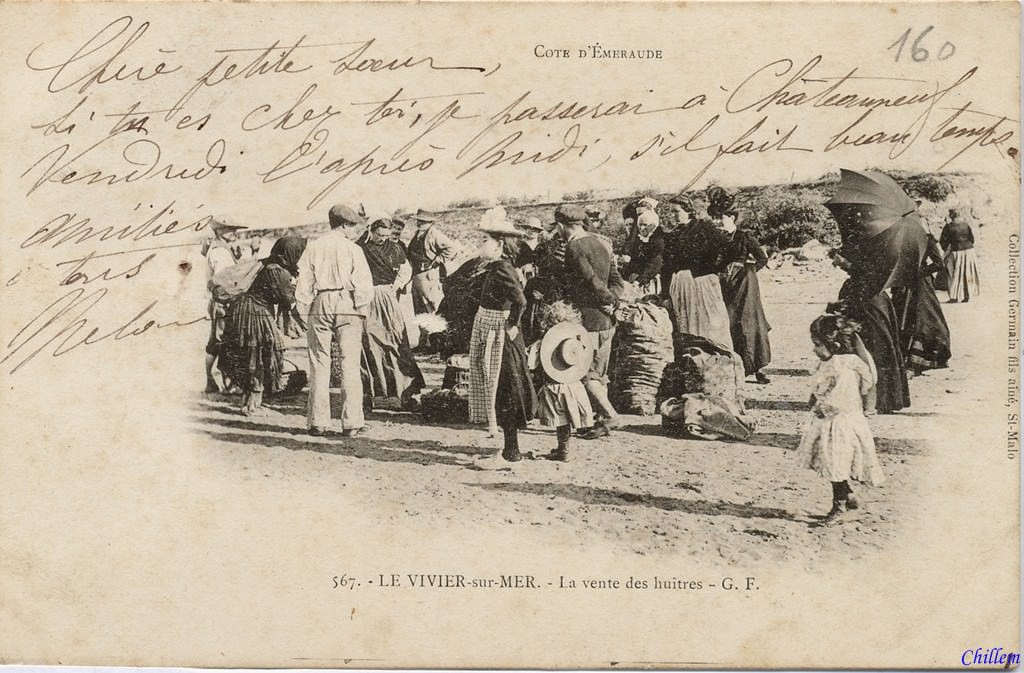 COTE D'ÉMERAUDE
160
Chère petite soeur,
Si tu es chez toi, je passerai à Châteauneuf
Vendredi l'après midi, s'il fait beau temps
amitiés
à tous
Collection Germain fils aîné, St-Malo
567. - LE VIVIER-sur-MER. - La vente des huîtres - G. F.
Chillem